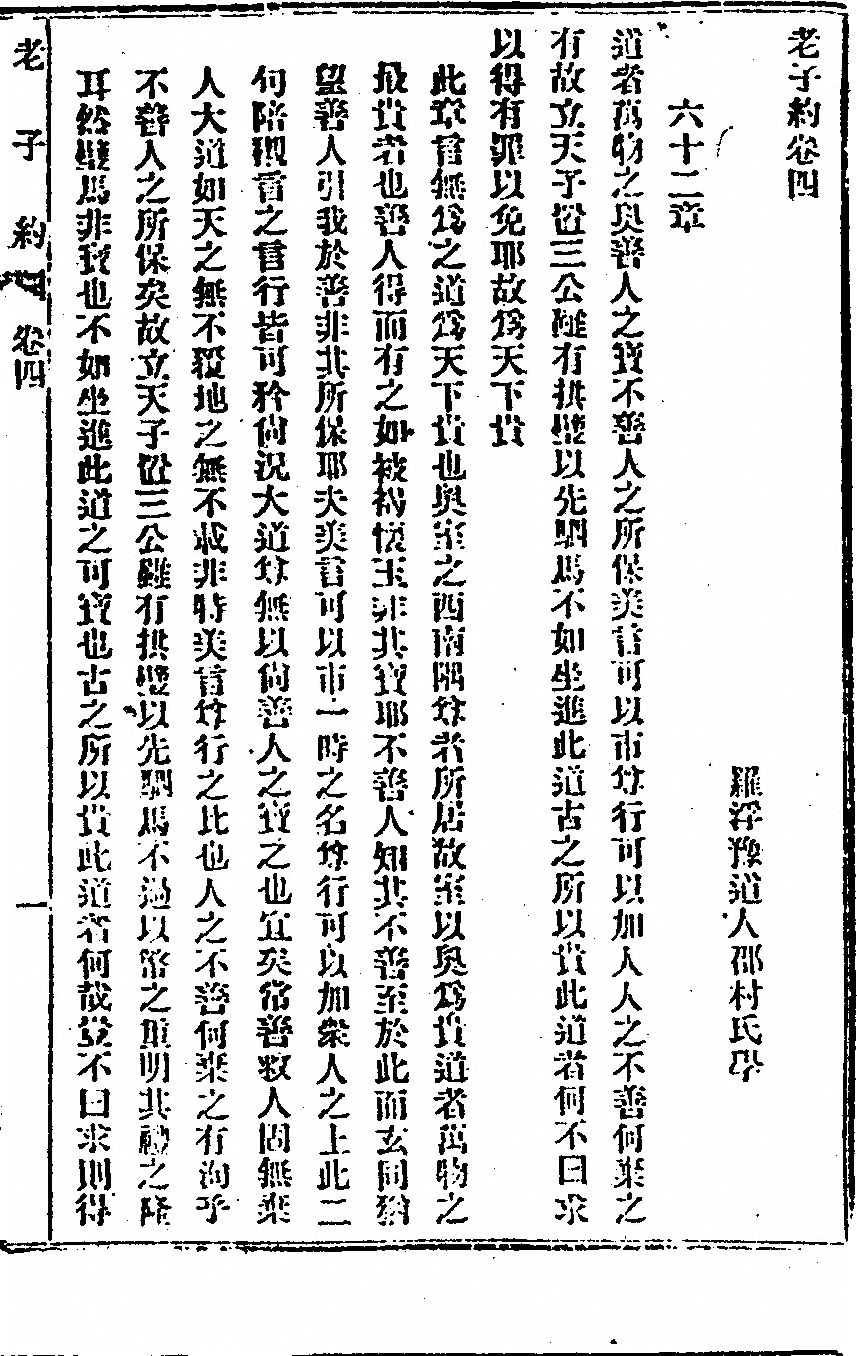 老子約卷四
羅浮豫道人邵村氏學
六十二章
道者萬物之奥善人之寶不善人之所保美言可以市尊行可以加人人之不善何棄之
有故立天子置三公雖有拱璧以先駟馬不如坐進此道古之所以貴此道者何不曰求
以得有罪以免耶故爲天下貴
此章言無爲之道爲天下貴也奥室之西南隅尊者所居故室以奥爲貴道者萬物之
最貴者也善人得而有之如被褐懷玉非其寶耶不善人知其不善至於此而玄同猶
望善人引我於善非其所保耶夫美言可以市一時之名尊行可以加衆人之上此二
何陪觀言之言行皆可矜尙況大道尊無以尙善人之寶之也宜矣常善救人固無棄
人大道如天之無不覆地之無不載非特美言尊行之比也人之不善何棄之有洵乎
不善人之所保矣故立天子置三公雖有拱璧以先駟馬不過以幣之重明其禮之隆
耳然璧馬非寶也不如坐進此道之可寶也古之所以貴此道者何哉豈不曰求則得
老子約 卷四
一